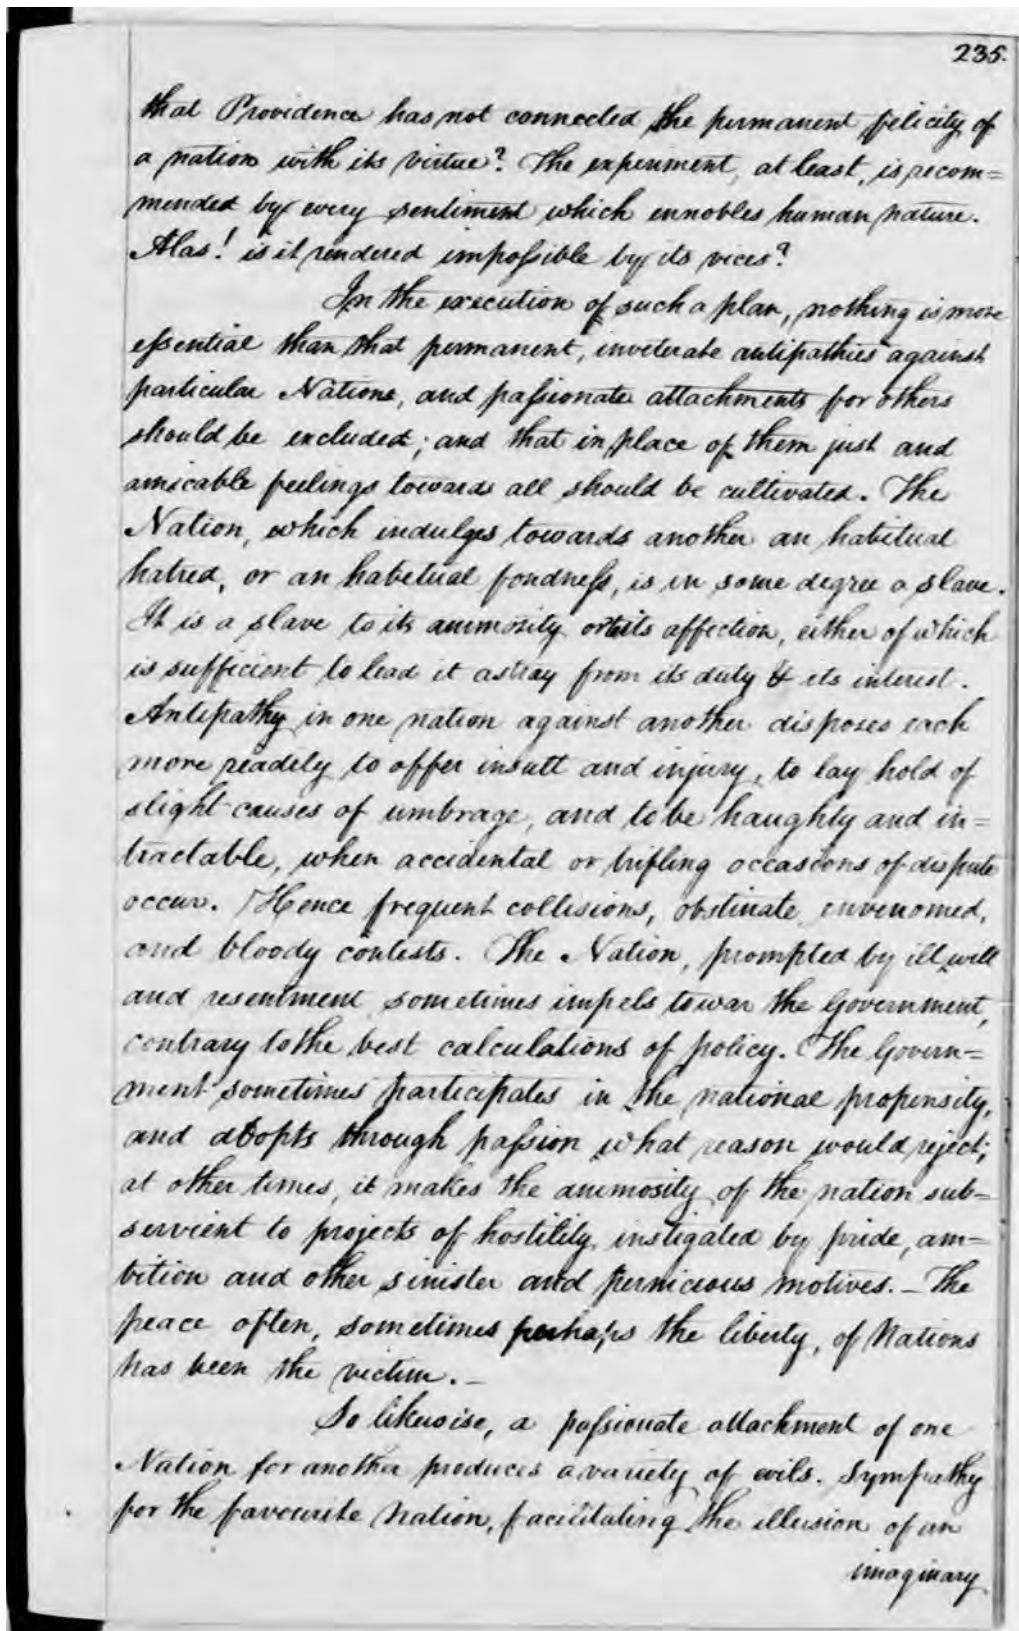 235.
that Providence has not connected the permanent felicity of
a nation with its virtue? The experiment, at least, is recom=
mended by every sentiment which ennobles human nature.
Alas! is it rendered impossible by its vices?
In the execution of such a plan, nothing is more
essential than that permanent, inveterate antipathies against
particular Nations, and passionate attachments for others
should be excluded; and that in place of them just and
amicable feelings towards all should be cultivated. The
Nation, which indulges towards another an habitual
hatred, or an habitual fondness, is in some degree a slave.
It is a slave to its animosity or to its affection, either of which
is sufficient to lead it astray from its duty & its interest.
Antipathy in one nation against another disposes each
more readily to offer insult and injury, to lay hold of
slight causes of umbrage, and to be haughty and in=
tractable, when accidental or trifling occasions of dispute
occur. Hence frequent collisions, obstinate, envenomed,
and bloody contests. The Nation, prompted by ill will
and resentment sometimes impels to war the Government,
contrary to the best calculations of policy. The Govern=
ment sometimes participates in the national propensity,
and adopts through passion what reason would reject;
at other times, it makes the animosity of the nation sub=
servient to projects of hostility instigated by pride, am=
bition and other sinister and pernicious motives. _ The
peace often, sometimes perhaps the liberty, of Nations
has been the victim. _
So likewise, a passionate attachment of one
Nation for another produces a variety of evils. Sympathy
for the favourite Nation, facilitating the illusion of an
imaginary